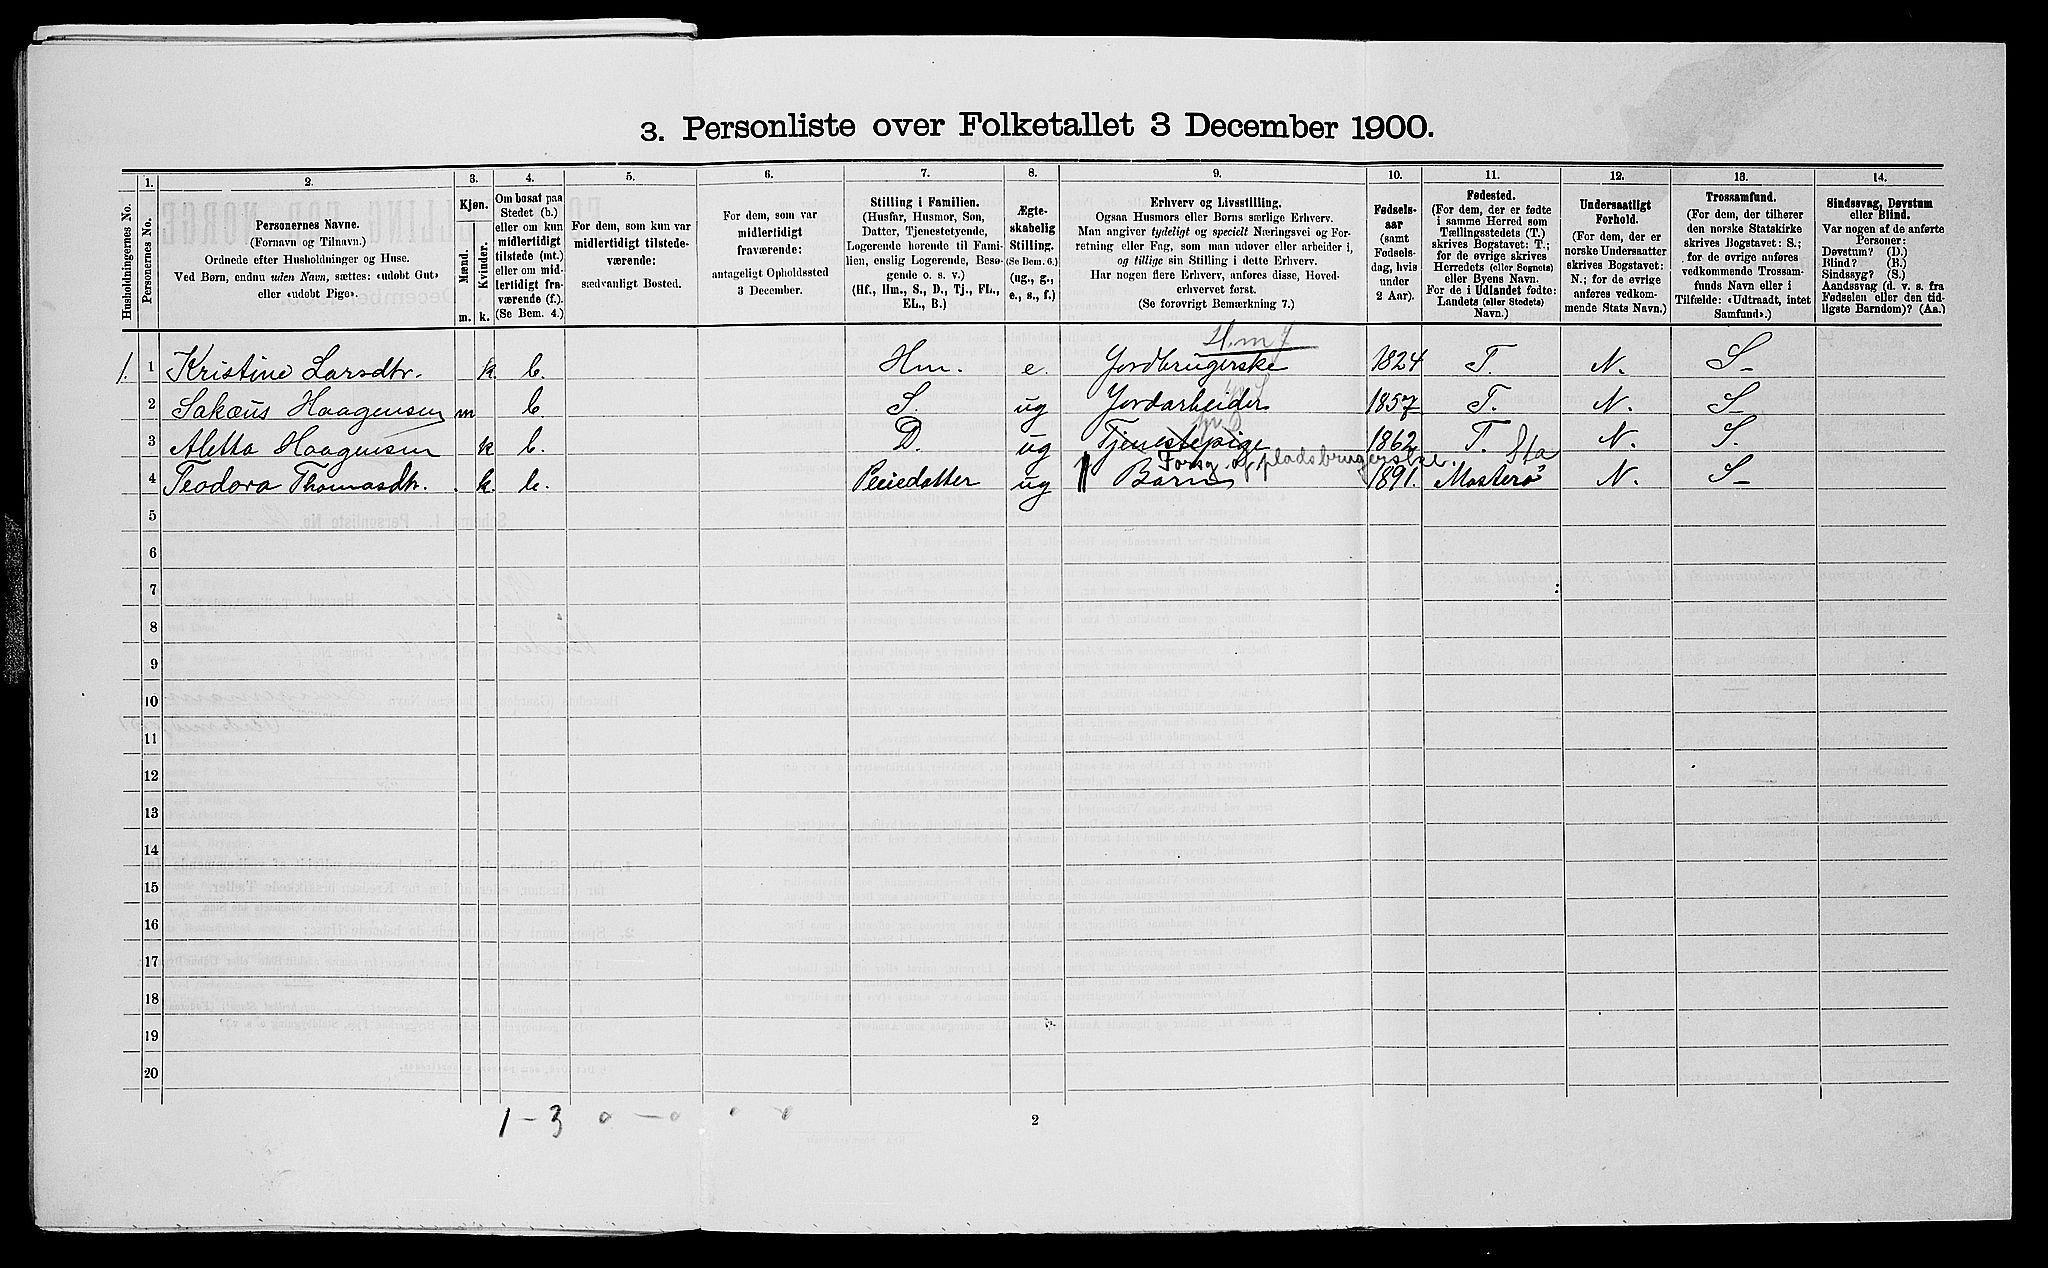 3. Personliste over Folketallet 3 December 1900.
Husholdningernes No.
1.
Personernes No.
2.
Personernes Navne.
(Fornavn og Tilnavn.)
Ordnede efter Husholdninger og Huse.
Ved Børn, endnu uden Navn, sættes: «udøbt Gut»
eller «udøbt Pige».
3.
Kjøn.
Mænd.
Kvinder.
m. k.
4.
Om bosat paa
Stedet (b.)
eller om kun
midlertidigt
tilstede (mt.)
eller om mid-
lertidigt fra-
værende (f.).
(Se Bem. 4.)
5.
For dem, som kun var
midlertidigt tilstede-
værende:
sædvanligt Bosted.
6.
For dem, som var
midlertidigt
fraværende:
antageligt Opholdssted
3 December.
7.
Stilling i Familien.
(Husfar, Husmor, Søn,
Datter, Tjenestetyende,
Logerende hørende til Fami-
lien, enslig Logerende, Besø-
gende o. s. v.)
(Hf., Hm., S., D., Tj., FL.,
EL., B.)
8.
Ægte-
skabelig
Stilling.
(Se Bem. 6.)
(ug., g.,
e., s., f.)
9.
Erhverv og Livsstilling.
Ogsaa Husmors eller Børns særlige Erhverv.
Man angiver tydeligt og specielt Næringsvei og For-
retning eller Fag, som man udøver eller arbeider i,
og tillige sin Stilling i dette Erhverv.
Har nogen flere Erhverv, anføres disse, Hoved-
erhvervet først.
(Se forøvrigt Bemærkning 7.)
10.
Fødsels-
aar
(samt
Fødsels-
dag, hvis
under
2 Aar).
11.
Fødested.
(For dem, der er fødte
i samme Herred som
Tællingsstedets (T.)
skrives Bogstavet: T.;
for de øvrige skrives
Herredets (eller Sognets)
eller Byens Navn.
For de i Udlandet fødte:
Landets (eller Stedets)
Navn.)
12.
Undersaatligt
Forhold.
(For dem, der er
norske Undersaatter
skrives Bogstavet:
N.; for de øvrige
anføres vedkom-
mende Stats Navn.)
13.
Trossamfund.
(For dem, der tilhører
den norske Statskirke
skrives Bogstavet: S.;
for de øvrige anføres
vedkommende Trossam-
funds Navn eller i
Tilfælde: «Udtraadt, intet
Samfund».)
14.
Sindssvag, Døvstum
eller Blind.
Var nogen af de anførte
Personer:
Døvstum? (D.)
Blind? (B.)
Sindssyg? (S.)
Aandssvag (d. v. s. fra
Fødselen eller den tid-
ligste Barndom)? (Aa.)
1. 1 Kristine Larsdtr. k. b. Hm. e. Jordbrugerske 1824 T. N. S
2 Sakæus Haagensen m b. S. ug Jordarbeider 1857 T. N. S
3 Aletta Haagensen k b. D. ug Tjenestepige 1862 T. N. S.
Forsg. af pladsbrugerske. Sta
4 Teodora Thomasdtr. k. b. Pleiedatter ug Barn 1891. Mosterø N. S
5
6
7
8
9
10
11
12
13
14
15
16
17
18
19
20
1-3 0-0
2